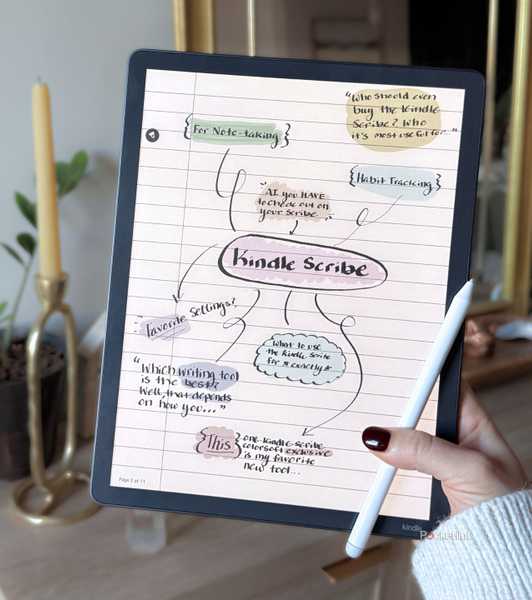 "Who should even
buy the Kindle
Scribe? Who
it's most useful for..."
{For Note-taking}
{Habit Tracking}
"AI you HAVE
to check out on
your Scribe"
Kindle Scribe
"Favorite Settings?
What to use
the Kindle Scribe
for *exactly*
"Which writing tool
is the best?
Well, that depends
on how you..."
{This} one Kindle Scribe
Colorsoft exclusive
is my favorite
new tool...
Page 5 of 11
kindle
Pocket-lint